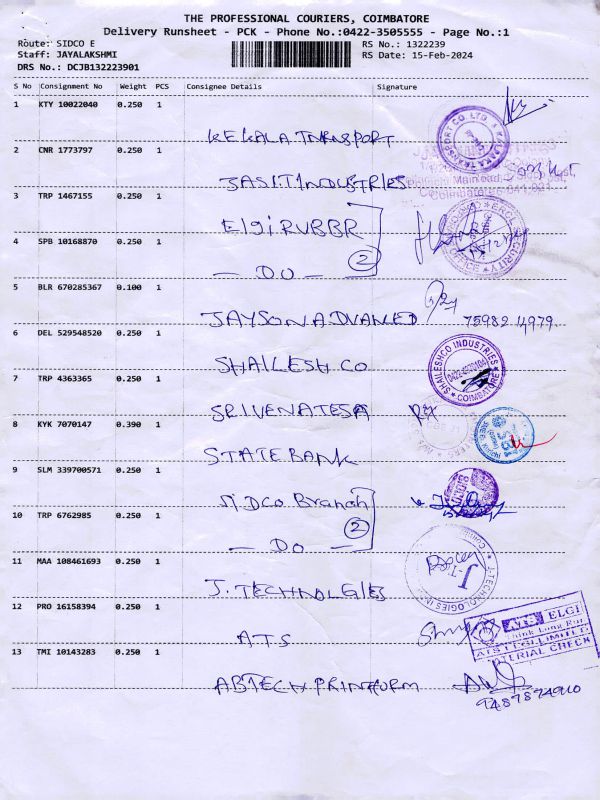 THE PROFESSIONAL COURIERS, COIMBATORE
Delivery Runsheet - PCK - Phone No.:0422-3505555 - Page No.:1
Route: SIDCO E
RS No.: 1322239
Staff: JAYALAKSHMI
RS Date: 15-Feb-2024
DRS No.: DCJB132223901
S No Consignment No Weight PCS Consignee Details Signature
1 KTY 10022040 0.250 1
KEKALA TRNSPORT
2 CNR 1773797 0.250 1
JASIT INDUSTRIES
3 TRP 1467155 0.250 1
Elgi RUBBR
4 SPB 10168870 0.250 1
— DO — 2
5 BLR 670285367 0.100 1
JAYSON ADVANCED 75982 14979
6 DEL 529548520 0.250 1
SHAILESH CO
SHAILESHCO INDUSTRIES
COIMBATORE
7 TRP 4363365 0.250 1
SRIVENATESA
8 KYK 7070147 0.390 1
STATE BANK
9 SLM 339700571 0.250 1
SIDCO Branch
10 TRP 6762985 0.250 1
— DO — 2
11 MAA 108461693 0.250 1
J. TECHNOLGIES
12 PRO 16158394 0.250 1
ATS
ELGI
13 TMI 10143283 0.250 1
ABTECH PRINTFORM
9487874910